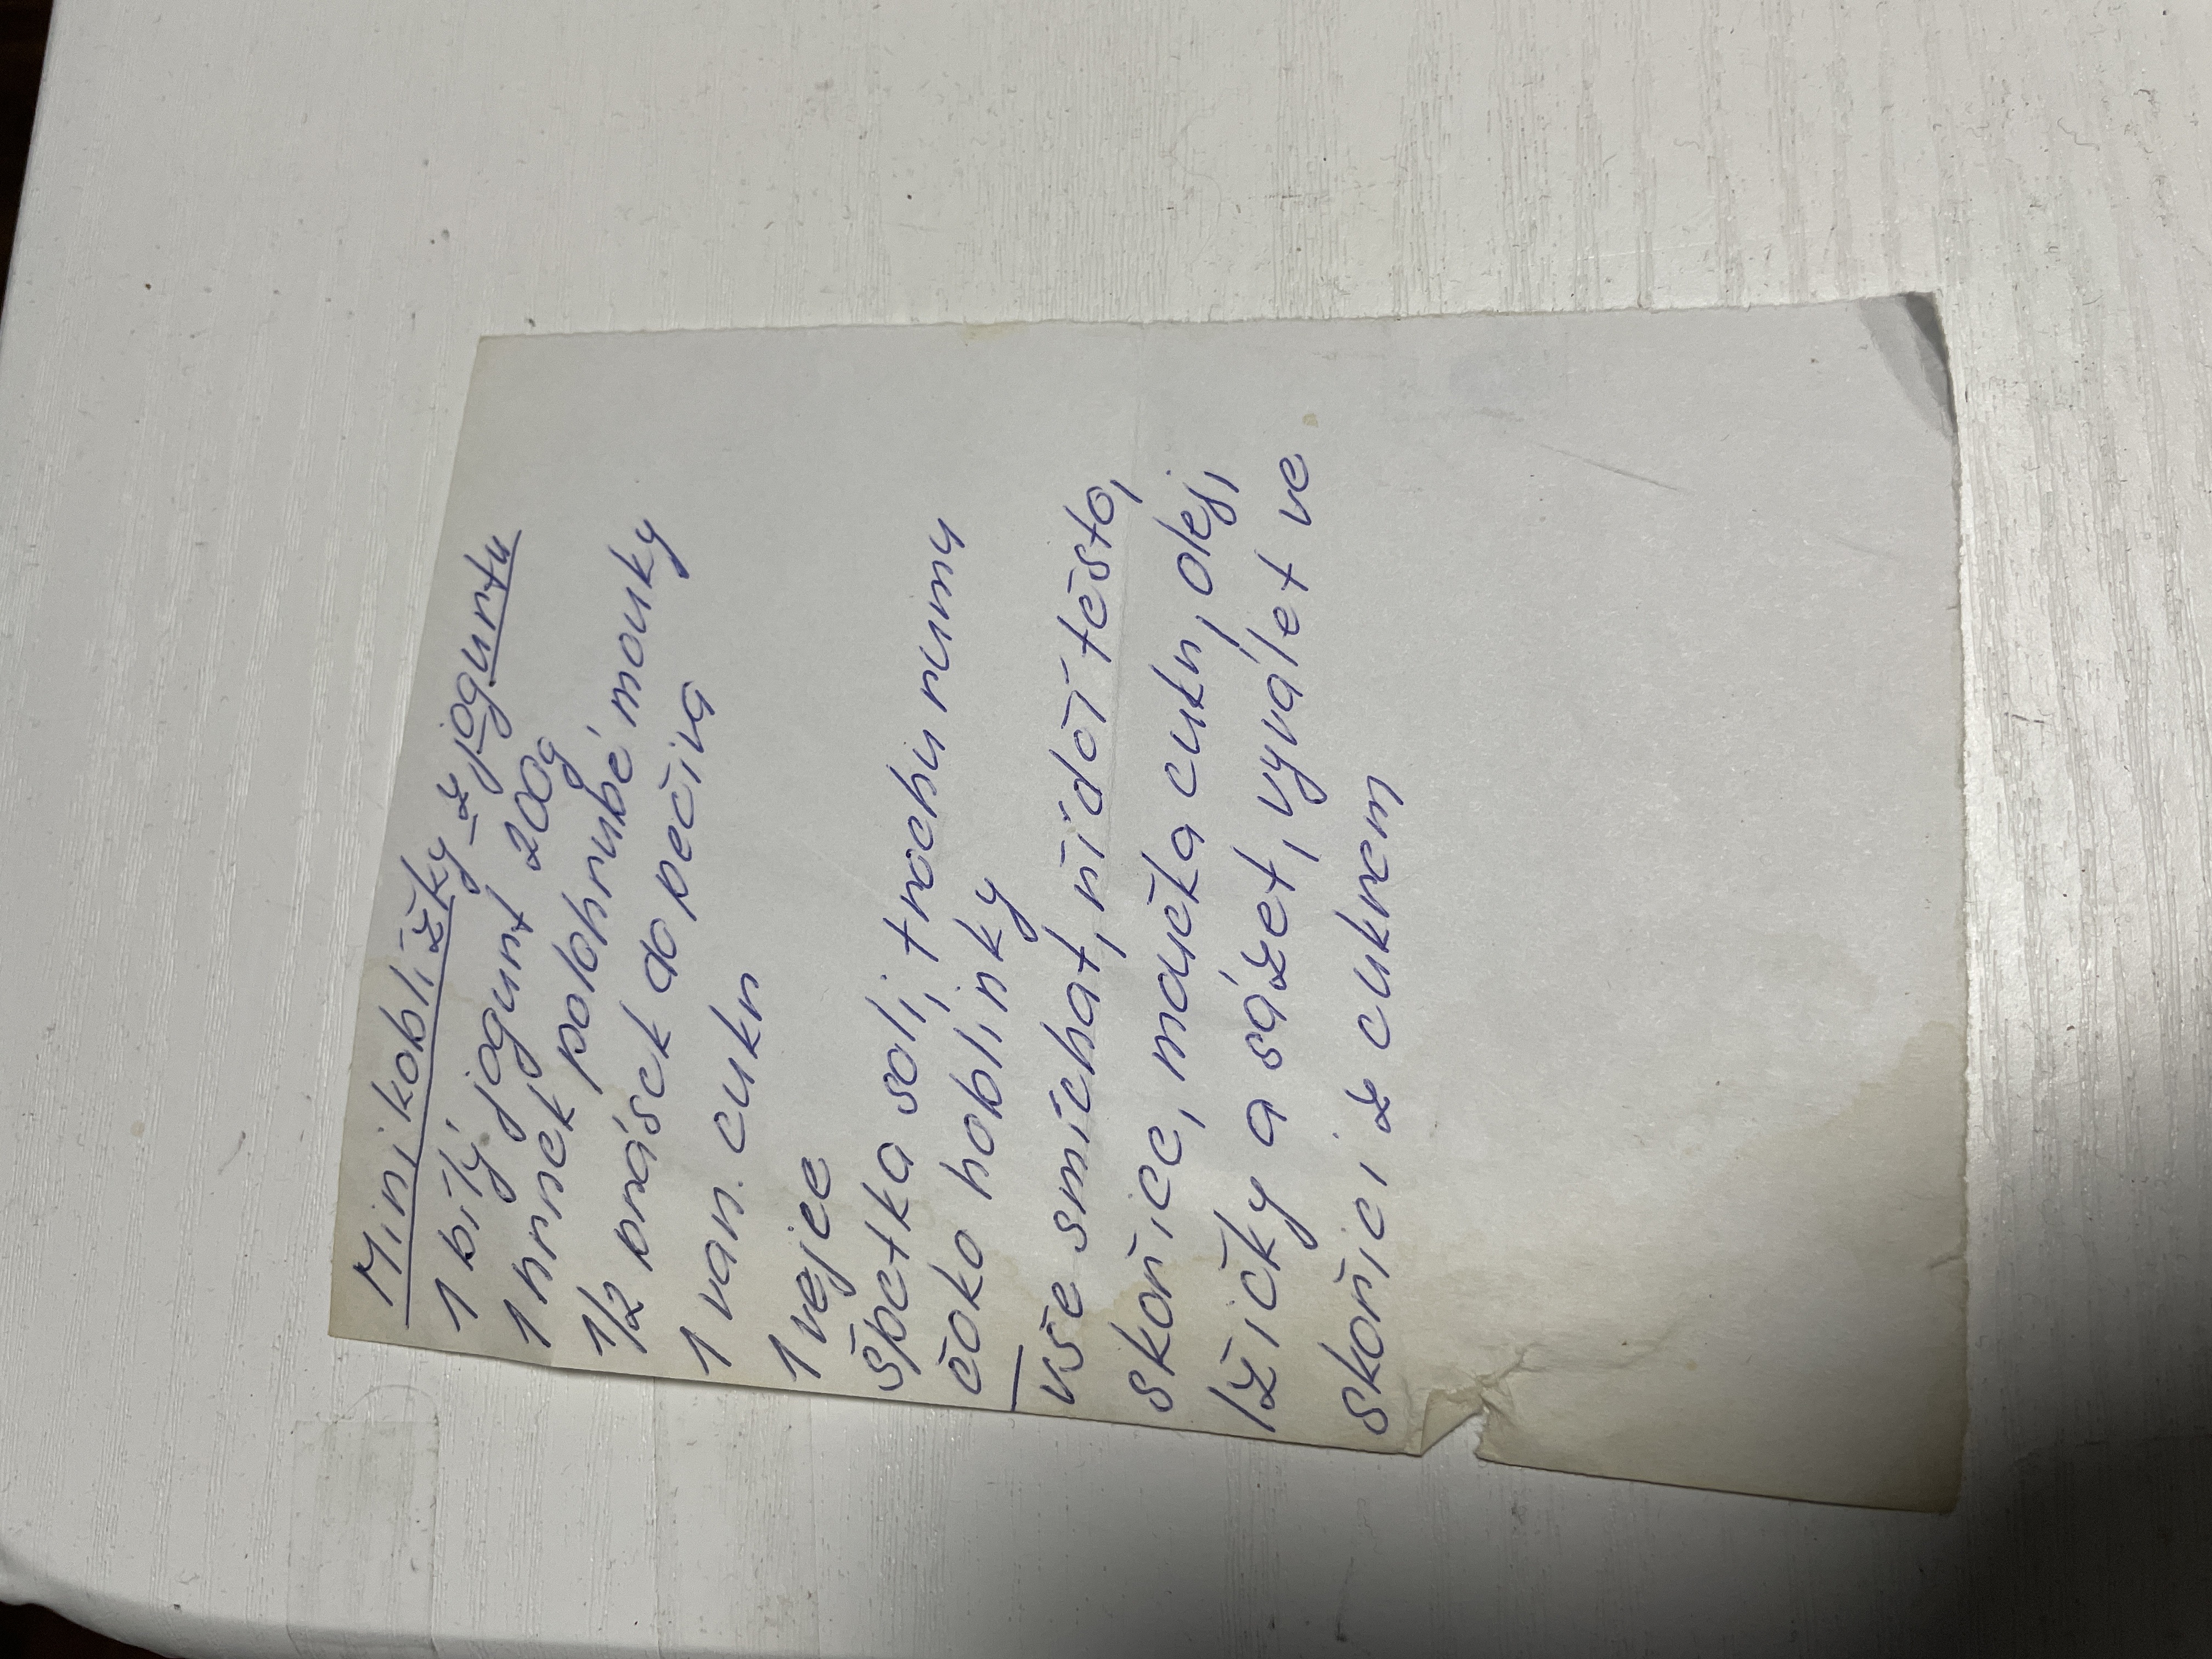 Mini koblížky z jogurtu
1 bílý jogurt 200g
1 hrnek polohrubé mouky
1/2 prásek do pečiva
1 van. cukr
1 vejce
špetka soli, trochu rumu
čoko hoblinky
vše smíchat, řidčí těsto,
skořice, moučka cukr, olej,
lžičky a sázet, vyválet ve
skořici z cukrem